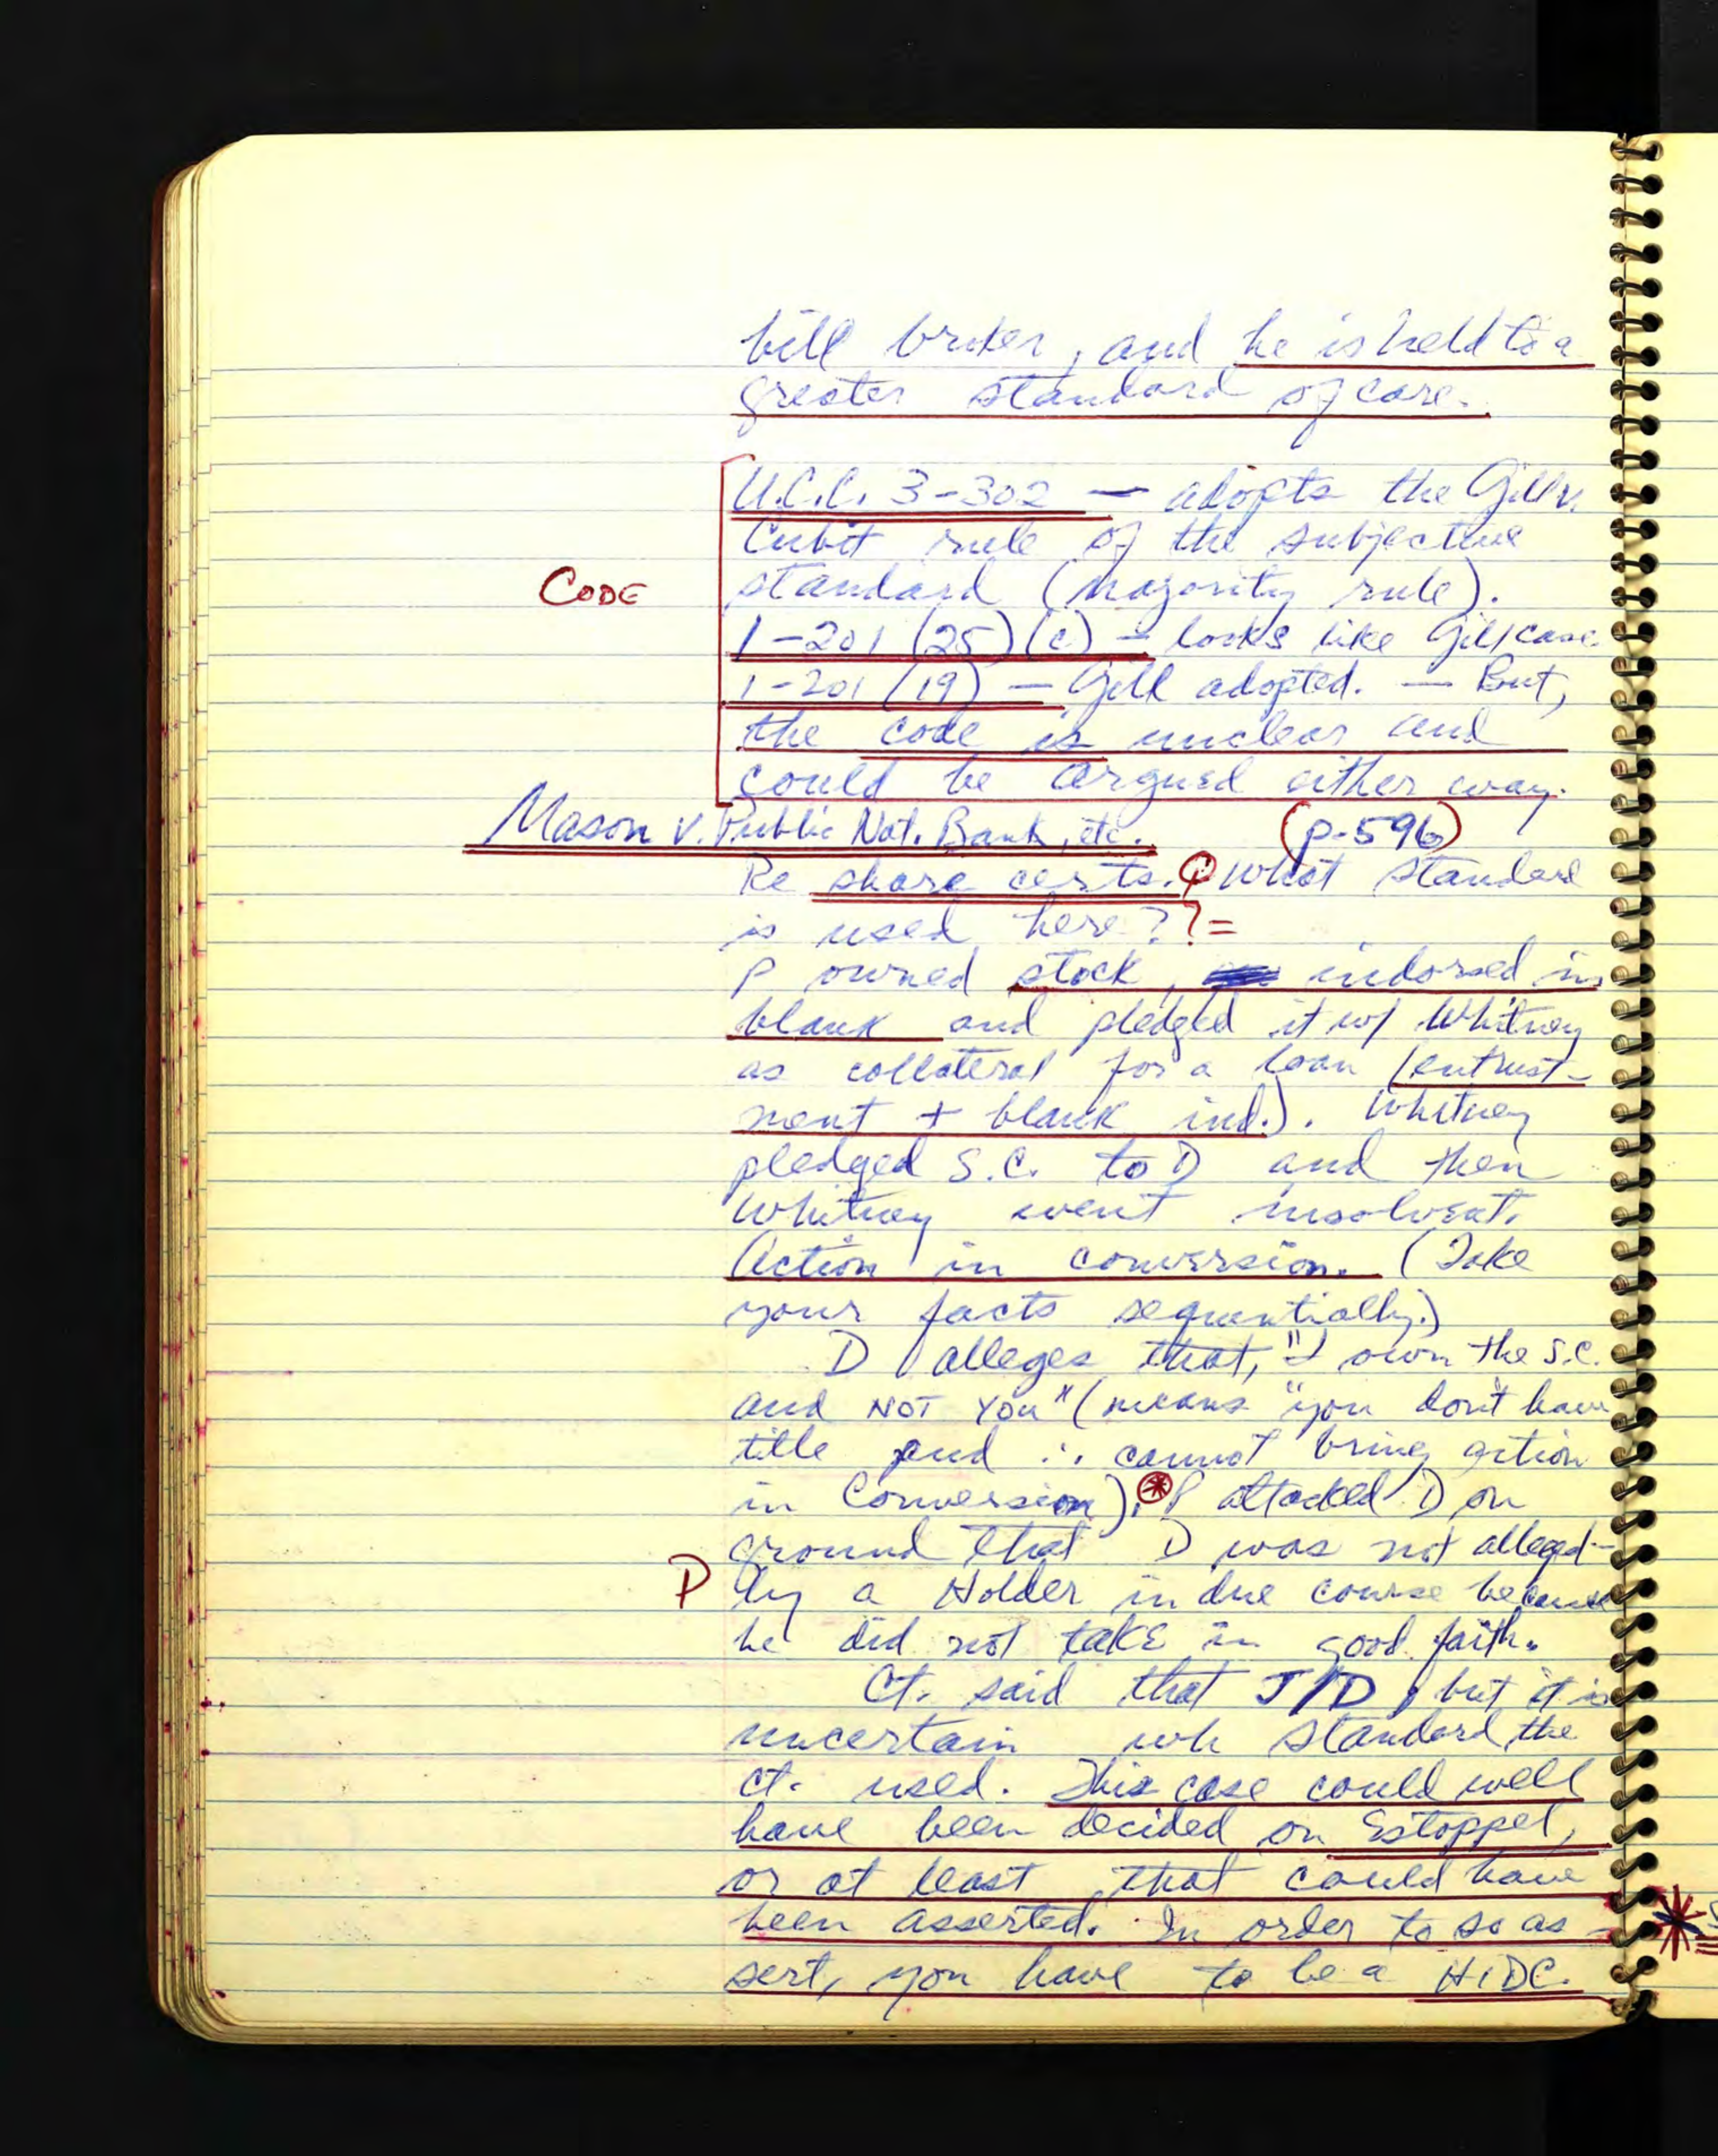 bill broker, and he is held to a
greater standard of care.
U.C.C. 3-302 — adopts the Gill v.
Cubit rule of the subjective
CODE standard (majority rule).
1-201 (25)(c) — looks like Gill case
1-201 (19) — Gill adopted. — But,
the code is unclear and
could be argued either way.
Mason v. Public Nat. Bank, etc. (p-596)
Re share certs. Q what standard
is used here? ? =
P owned stock, indorsed in
blank and pledged it w/ Whitney
as collateral for a loan (entrust-
ment + blank ind.). Whitney
pledged S.C. to D and then
Whitney went insolvent.
Action in conversion. (Take
your facts sequentially.)
D alleges that, "I own the S.C.
and NOT YOU" (means "you don't have
title and ∴ cannot bring action
in Conversion). P attacked D on
ground that D was not alleged-
P ly a Holder in due course because
he did not take in good faith.
Ct. said that J/D, but it is
uncertain wh standard the
ct. used. This case could well
have been decided on Estoppel,
or at least that could have
been asserted. In order to so as-
sert, you have to be a HIDC.